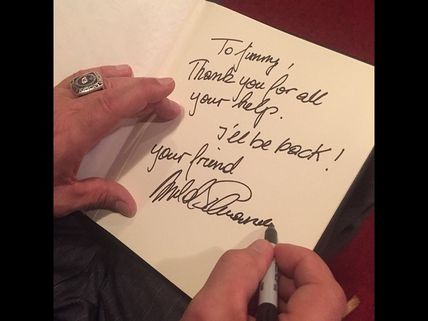 To Jimmy,
Thank you for all
your help.
I'll be back!
your friend